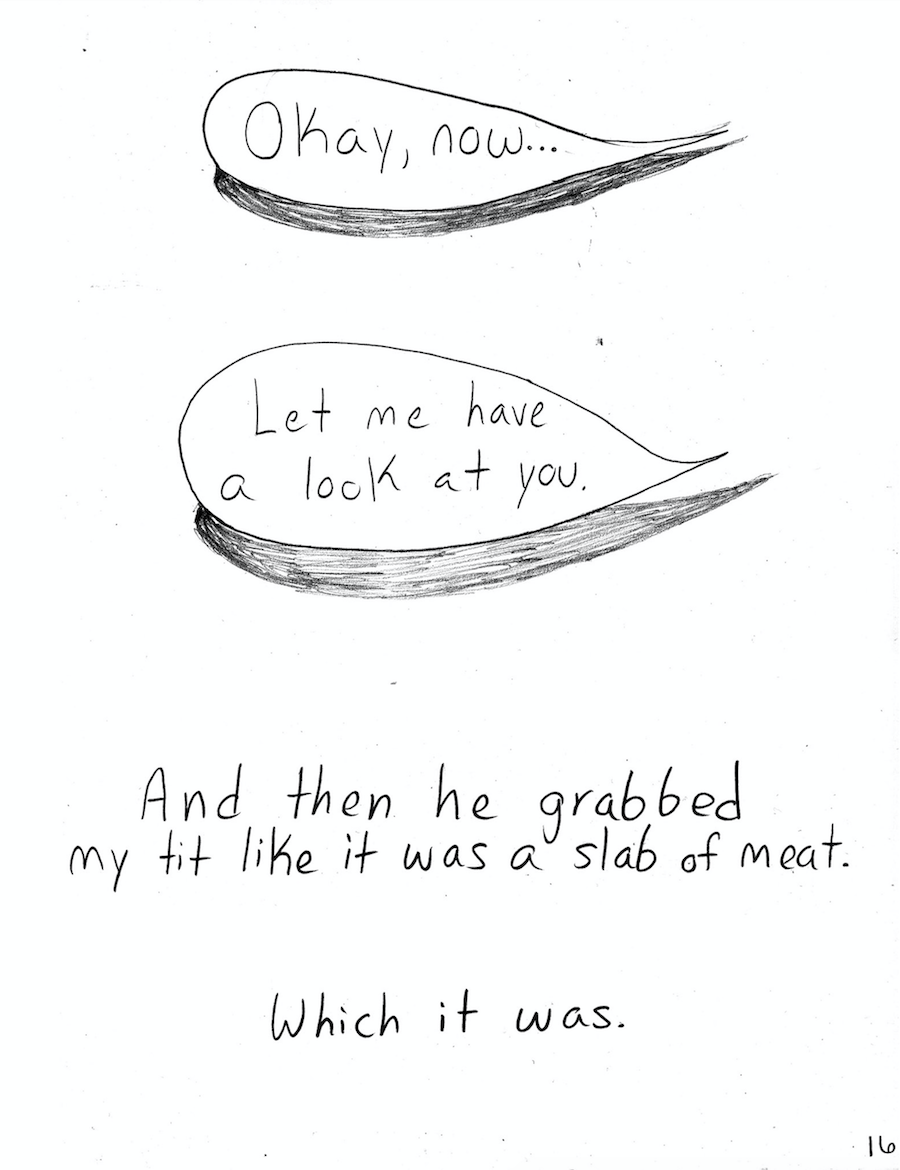 Okay, now...
Let me have
a look at you.
And then he grabbed
my tit like it was a slab of meat.
Which it was.
16